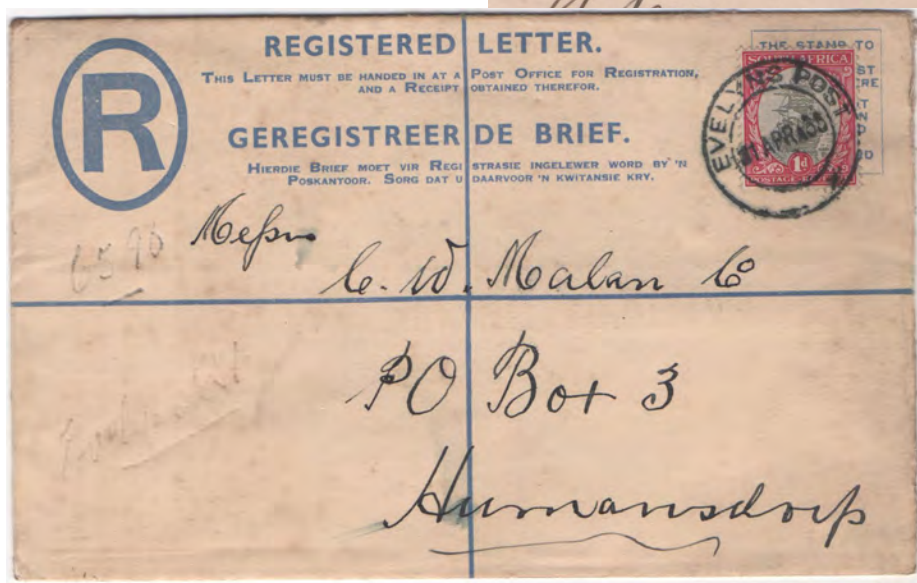 REGISTERED LETTER.
THIS LETTER MUST BE HANDED IN AT A POST OFFICE FOR REGISTRATION,
AND A RECEIPT OBTAINED THEREFOR.
GEREGISTREERDE BRIEF.
HIERDIE BRIEF MOET VIR REGISTRASIE INGELEWER WORD BY 'N
POSKANTOOR. SORG DAT U DAARVOOR 'N KWITANSIE KRY.
R
THE STAMP TO
SOUTH AFRICA
EVELYNS POST
APR
1d
Messrs
C. W. Malan Co
PO Box 3
Humansdorp